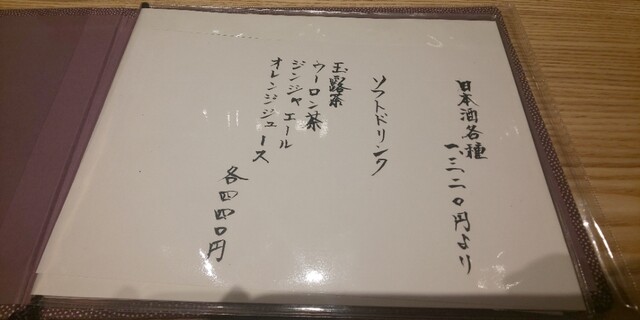 日本酒各種
一、三二〇円より
ソフトドリンク
玉露茶
ウーロン茶
ジンジャエール
オレンジジュース
各四四〇円